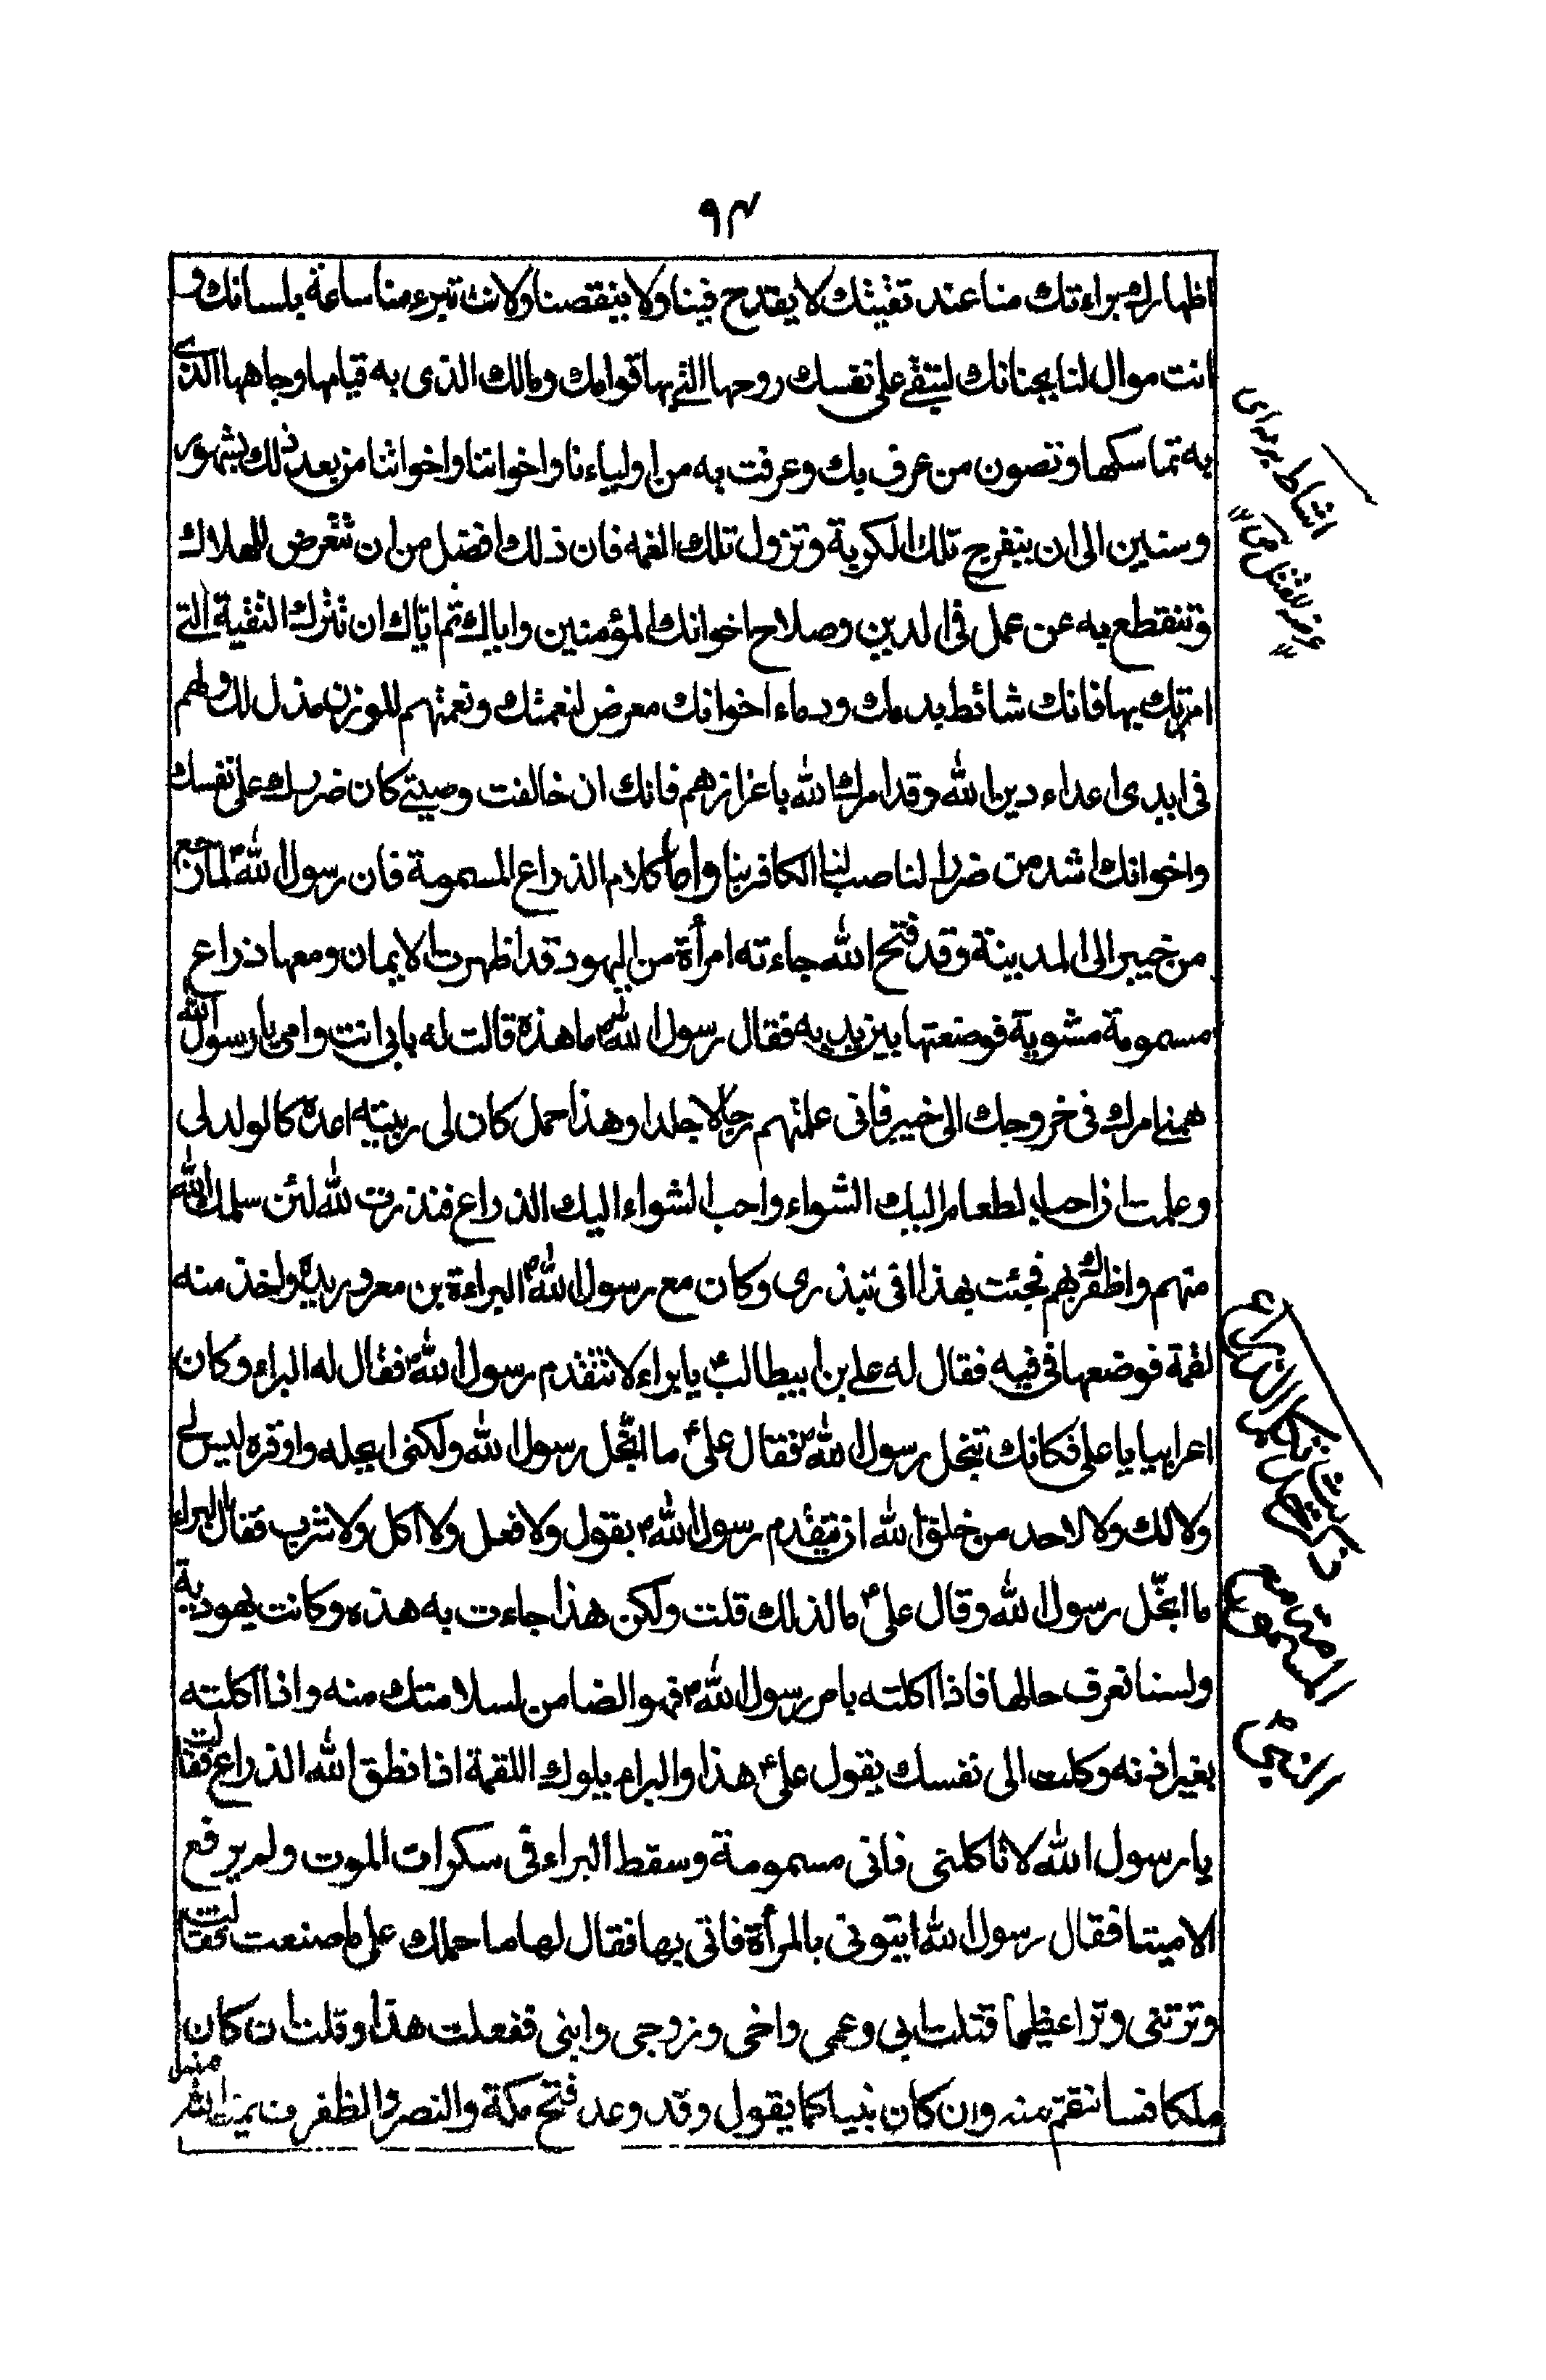 ٩٤
اظهارك براءتك منا عند تقيتك لا يقدح فينا ولا ينقصنا ولانت تبرء منا ساعة بلسانك و
انت موال لنا بجنانك لتبقى على نفسك روحها التي بها قوامك ومالك الذى به قيامها وجاهها الذى
به تماسكها وتصون من عرف بك وعرفت به من اولياءنا واخواننا واخواتنا من بعد ذلك بشهور
وسنين الى ان ينفرج تلك الكربة وتزول تلك الغمه فان ذلك افضل من ان تتعرض للهلاك
وتنقطع به عن عمل فى الدين وصلاح اخوانك المؤمنين واياك ثم اياك ان تترك التقية التي
امرتك بها فانك شائط بدمك ودماء اخوانك معرض لنعمتك ونعمتهم للزوال مذل لك ولهم
فى ايدى اعداء دين الله وقد امرك الله باعزازهم فانك ان خالفت وصيتي كان ضررك على نفسك
واخوانك اشد من ضرر الناصب لنا الكافر بنا واما كلام الذراع المسمومة فان رسول الله ص لما رجع
من خيبر الى المدينة وقد فتح الله جاءته امرأة من اليهود قد اظهرت الايمان ومعها ذراع
مسمومة مشوية فوضعتها بين يديه فقال رسول الله ص ما هذه قالت له بابى انت وامى يا رسول الله
همنى امرك فى خروجك الى خيبر فانى علمتهم رجالا جلدا وهذا حمل كان لى ربيته اعده كالولد لى
وعلمت ان احب الطعام اليك الشواء واحب الشواء اليك الذراع فنذرت لله لئن سلمك الله
منهم واظفرك بهم فجئت بهذا افى بنذرى وكان مع رسول الله ص البراءة بن معرور يده ولخذ منه
لقمة فوضعها فى فيه فقال له على بن ابيطالب ع يا براء لا تتقدم رسول الله ص فقال له البراء وكان
اعرابيا يا على فكانك تبخل رسول الله ص فقال على ع ما ابخّل رسول الله ولكنى ابجله واوقره ليس لى
ولا لك ولا لاحد من خلق الله ان يتقدم رسول الله ص بقول ولا فعل ولا اكل ولا شرب فقال البراء
ما ابخّل رسول الله وقال على ع ما لذلك قلت ولكن هذا جاءت به هذه وكانت يهودية
ولسنا نعرف حالها فاذا اكلته بامر رسول الله ص فهو الضامن لسلامتك منه واذا اكلته
بغير اذنه وكلت الى نفسك يقول على ع هذا والبراء يلوك اللقمة اذا نطق الله الذراع فقالت
يا رسول الله لا تاكلنى فانى مسمومة وسقط البراء فى سكرات الموت ولم يرفع
الا ميتا فقال رسول الله ايتونى بالمرأة فاتى بها فقال لها ما حملك على ما صنعت فقالت
وترتنى وترا عظيما قتلت ابى وعمى واخى وزوجى وابنى ففعلت هذا وقلت ان كان
ملكا فسانتقم منه وان كان نبيا كما يقول وقد وعد فتح مكة والنصر والظفر
اشاط بدمه اى
عرضه للقتل